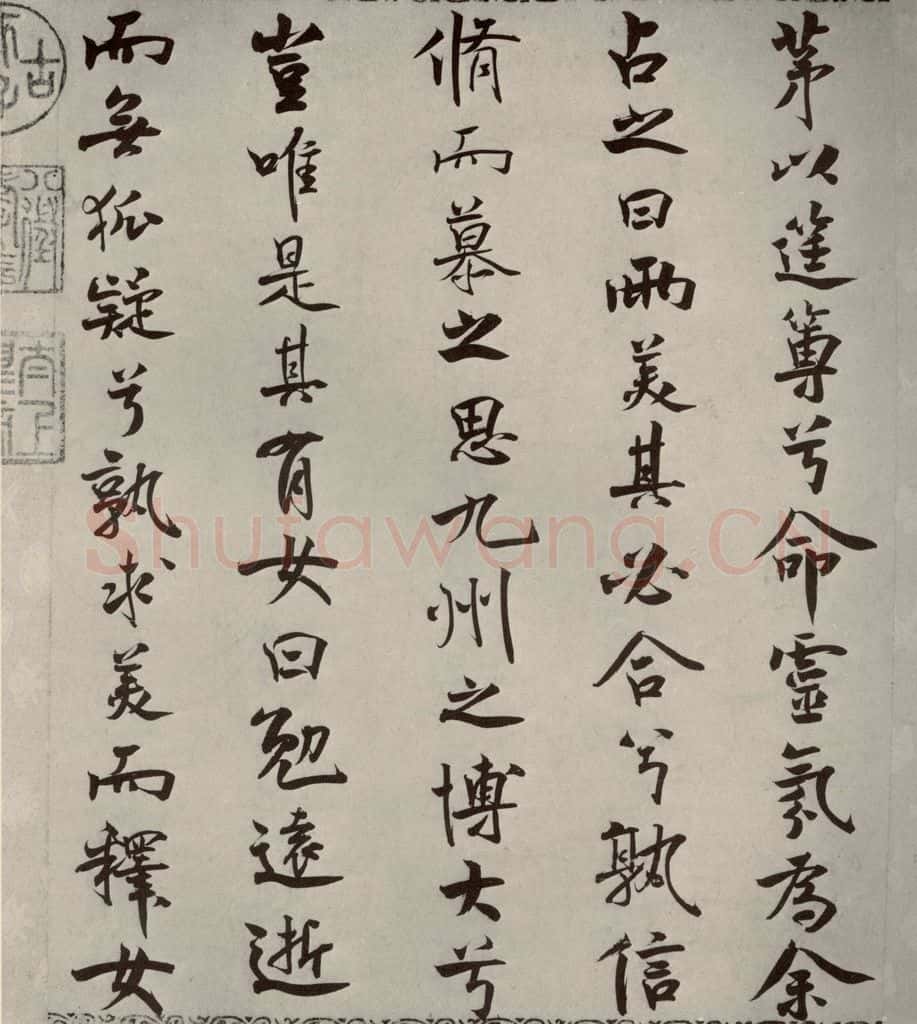 茅以筳篿兮命靈氛為余
占之曰兩美其必合兮孰信
脩而慕之思九州之博大兮
豈唯是其有女曰勉遠逝
而無狐疑兮孰求美而釋女
Shufawang.cn